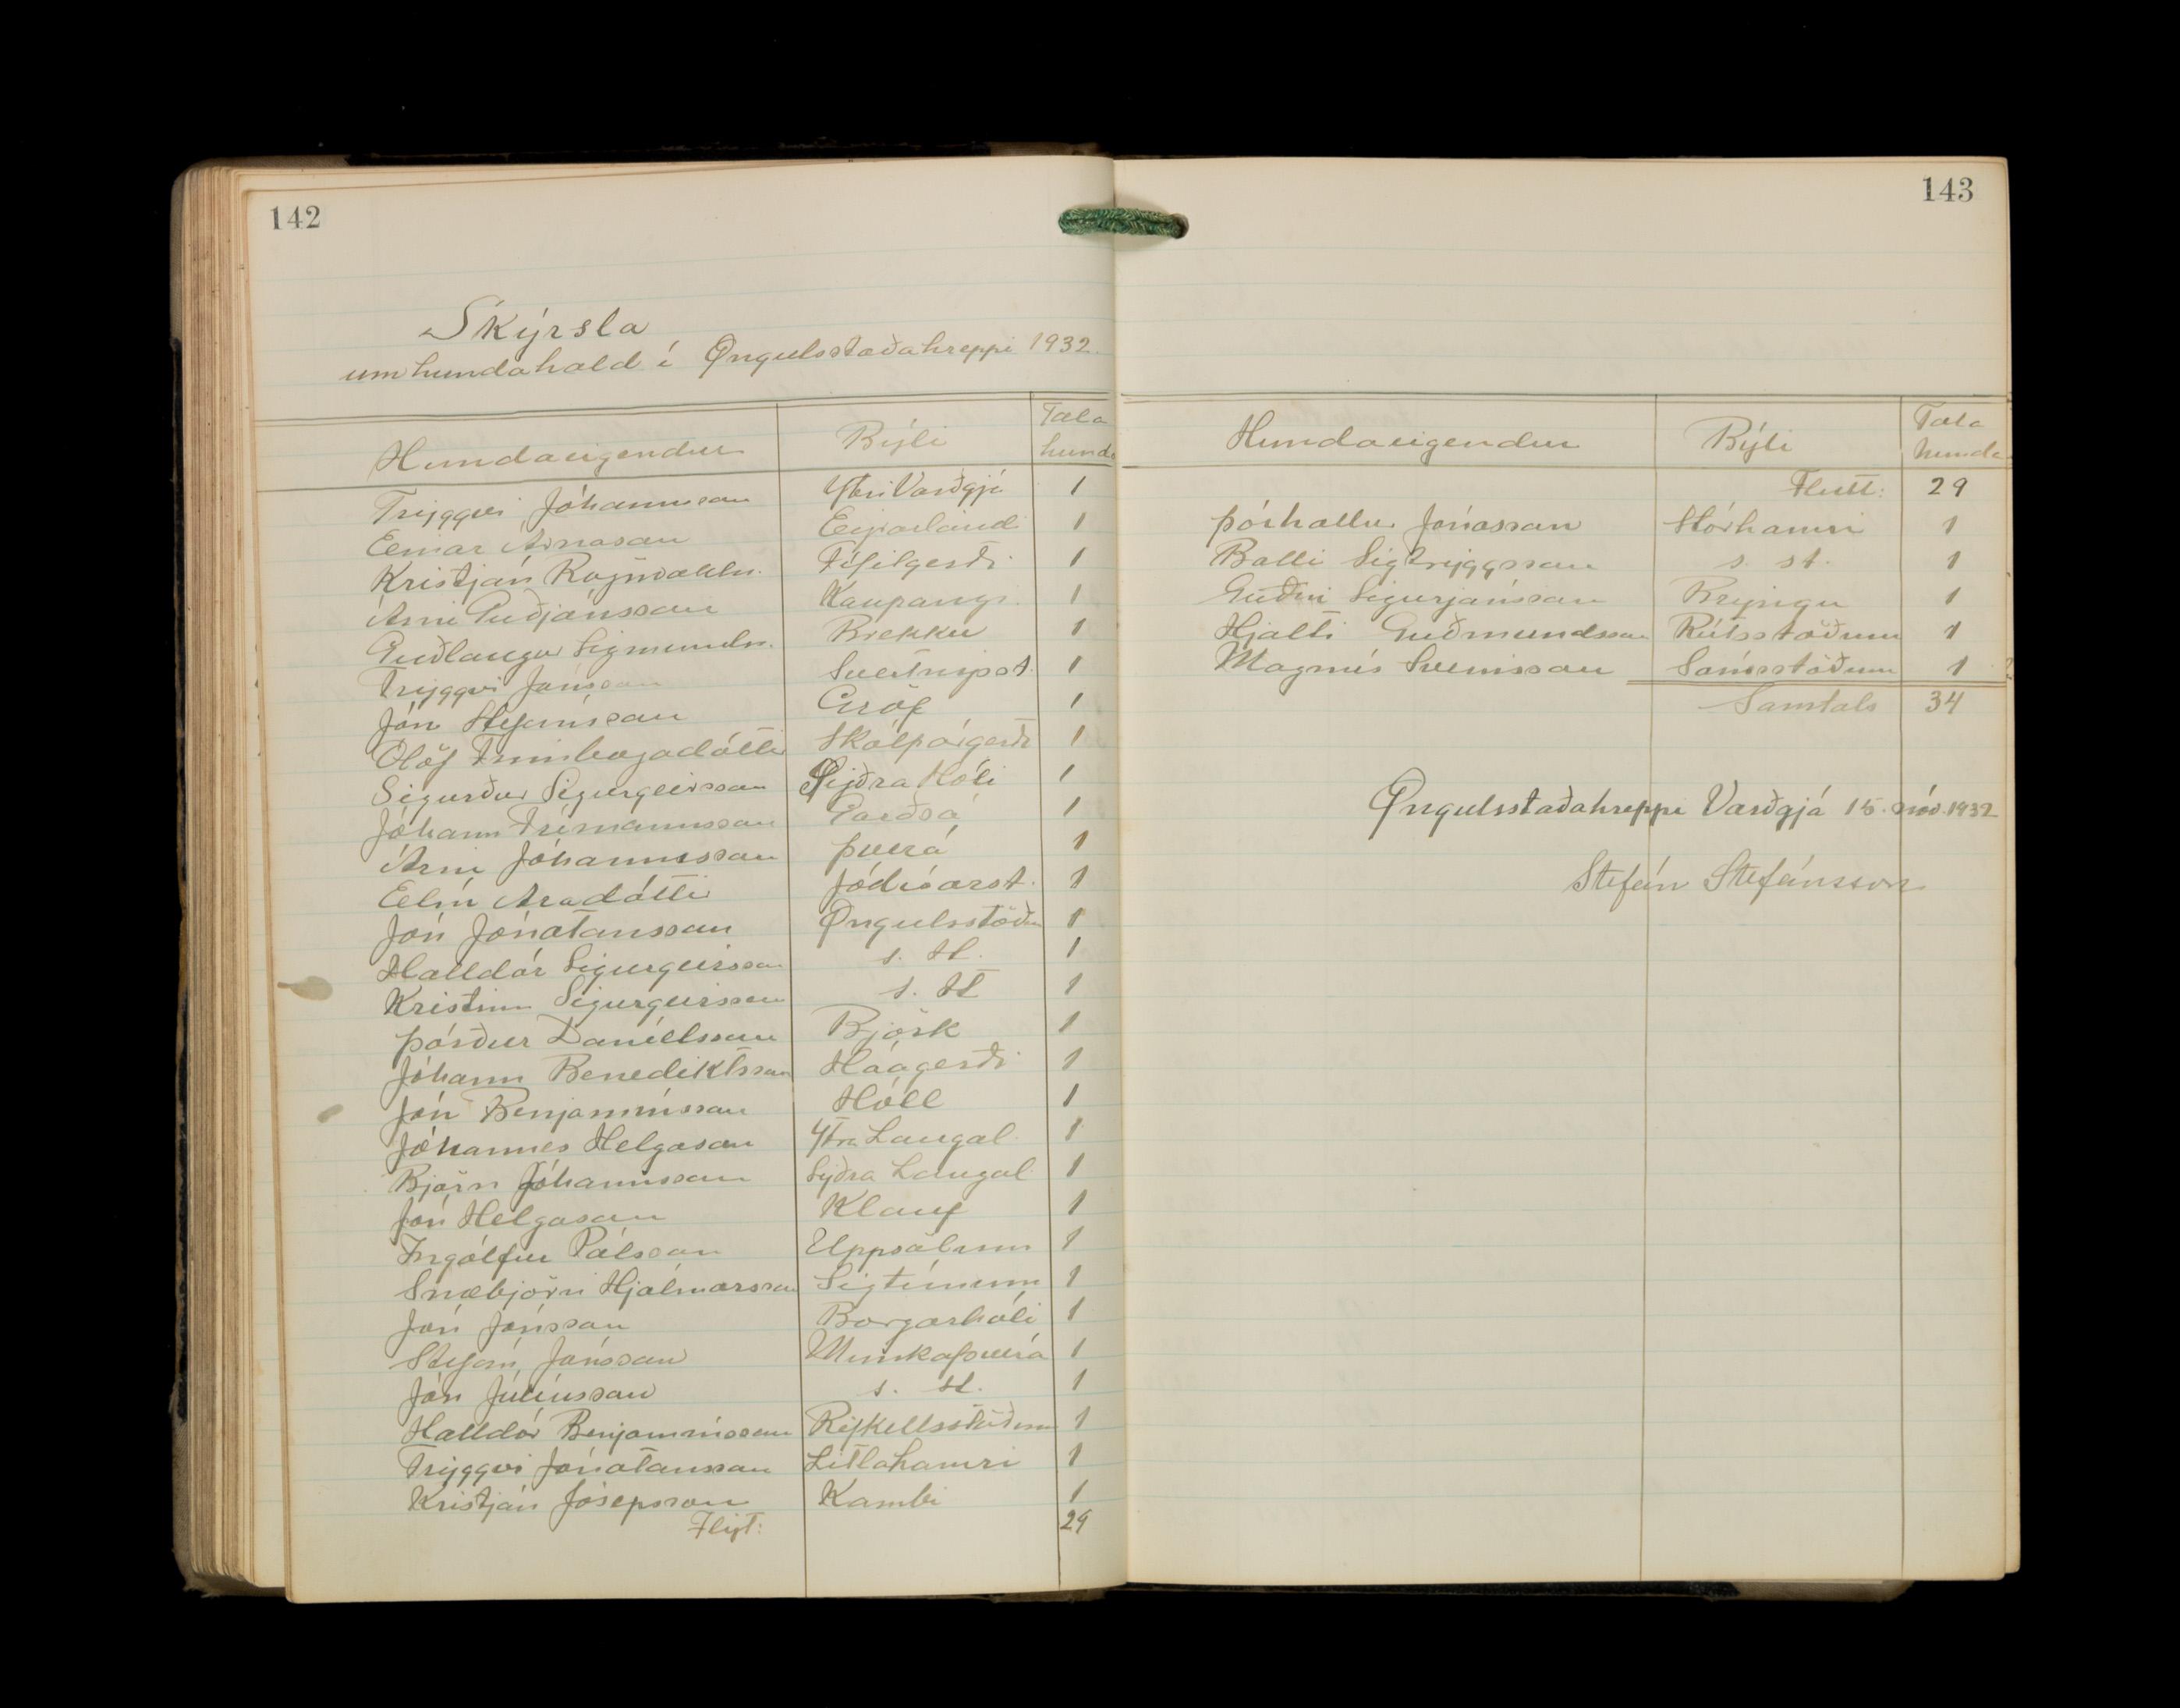 142
Skýrsla
um hundahald í Öngulsstaðahreppi 1932.
Hundaeigendur Býli Tala hunda
Tryggvi Jóhannsson Ytri Varðgjá 1
Einar Árnason Eyrarland 1
Kristján Rögnvaldn. Fífilgerði 1
Árni Guðjónsson Kaupangi 1
Guðlaugur Sigmundn. Brekku 1
Tryggvi Jónsson Sveinnspst. 1
Jón Stefánsson Gröf 1
Ólöf Finnbogadóttir Skálpagerði 1
Sigurður Sigurgeirsson Syðra Hóli 1
Jóhann Frímannsson Garðsá 1
Árni Jóhannesson Þverá 1
Elín Aradóttir Jódísarst. 1
Jón Jónatansson Öngulsstöðu 1
Halldór Sigurgeirsson s. st. 1
Kristinn Sigurgeirsson s. st 1
Þórður Daníelsson Björk 1
Jóhann Benediktsson Háagerði 1
Jón Benjamínsson Hóll 1
Jóhannes Helgason Ytra Laugal. 1
Björn Jóhannsson Syðra Laugal. 1
Jón Helgason Klauf 1
Ingólfur Pálsson Uppsölum 1
Snæbjörn Hjálmarsson Sigtúnum 1
Jón Jónsson Borgarhóli 1
Stefán Jónsson Munkaþverá 1
Jón Júlíusson s. st. 1
Halldór Benjamínsson Rifkellsstöðum 1
Tryggvi Jónatansson Litlahamri 1
Kristján Jósepsson Kambi 1
Flyt: 29
143
Hundaeigendur Býli Tala hunda
Flutt: 29
Þórhallur Jónasson Stórhamri 1
Balli Sigtryggsson s. st. 1
Guðni Sigurjónsson Bryngu 1
Hjalti Guðmundsson Rútsstöðum 1
Magnús Sveinsson Sámsstöðum 1
Samtals 34
Öngulsstaðahreppi Varðgjá 15. nóv. 1932
Stefán Stefánsson